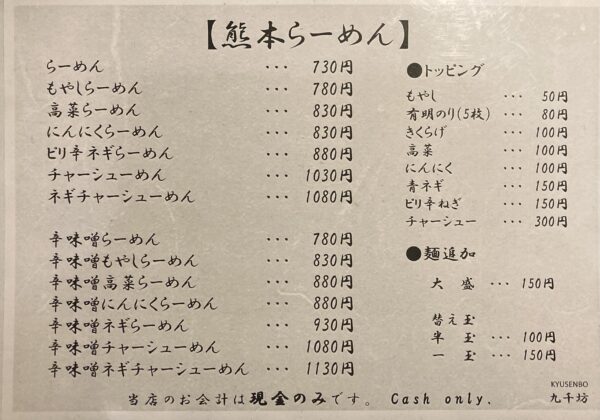 【熊本らーめん】
らーめん ･･･ 730円
もやしらーめん ･･･ 780円
高菜らーめん ･･･ 830円
にんにくらーめん ･･･ 830円
ピリ辛ネギらーめん ･･･ 880円
チャーシューめん ･･･ 1030円
ネギチャーシューめん ･･･ 1080円
辛味噌らーめん ･･･ 780円
辛味噌もやしらーめん ･･･ 830円
辛味噌高菜らーめん ･･･ 880円
辛味噌にんにくらーめん ･･･ 880円
辛味噌ネギらーめん ･･･ 930円
辛味噌チャーシューめん ･･･ 1080円
辛味噌ネギチャーシューめん ･･･ 1130円
●トッピング
もやし ･･･ 50円
有明のり(5枚) ･･･ 80円
きくらげ ･･･ 100円
高菜 ･･･ 100円
にんにく ･･･ 100円
青ネギ ･･･ 150円
ピリ辛ねぎ ･･･ 150円
チャーシュー ･･･ 300円
●麺追加
大 盛 ･･･ 150円
替え玉
半 玉 ･･･ 100円
一 玉 ･･･ 150円
当店のお会計は現金のみです。 Cash only.
KYUSENBO
九千坊